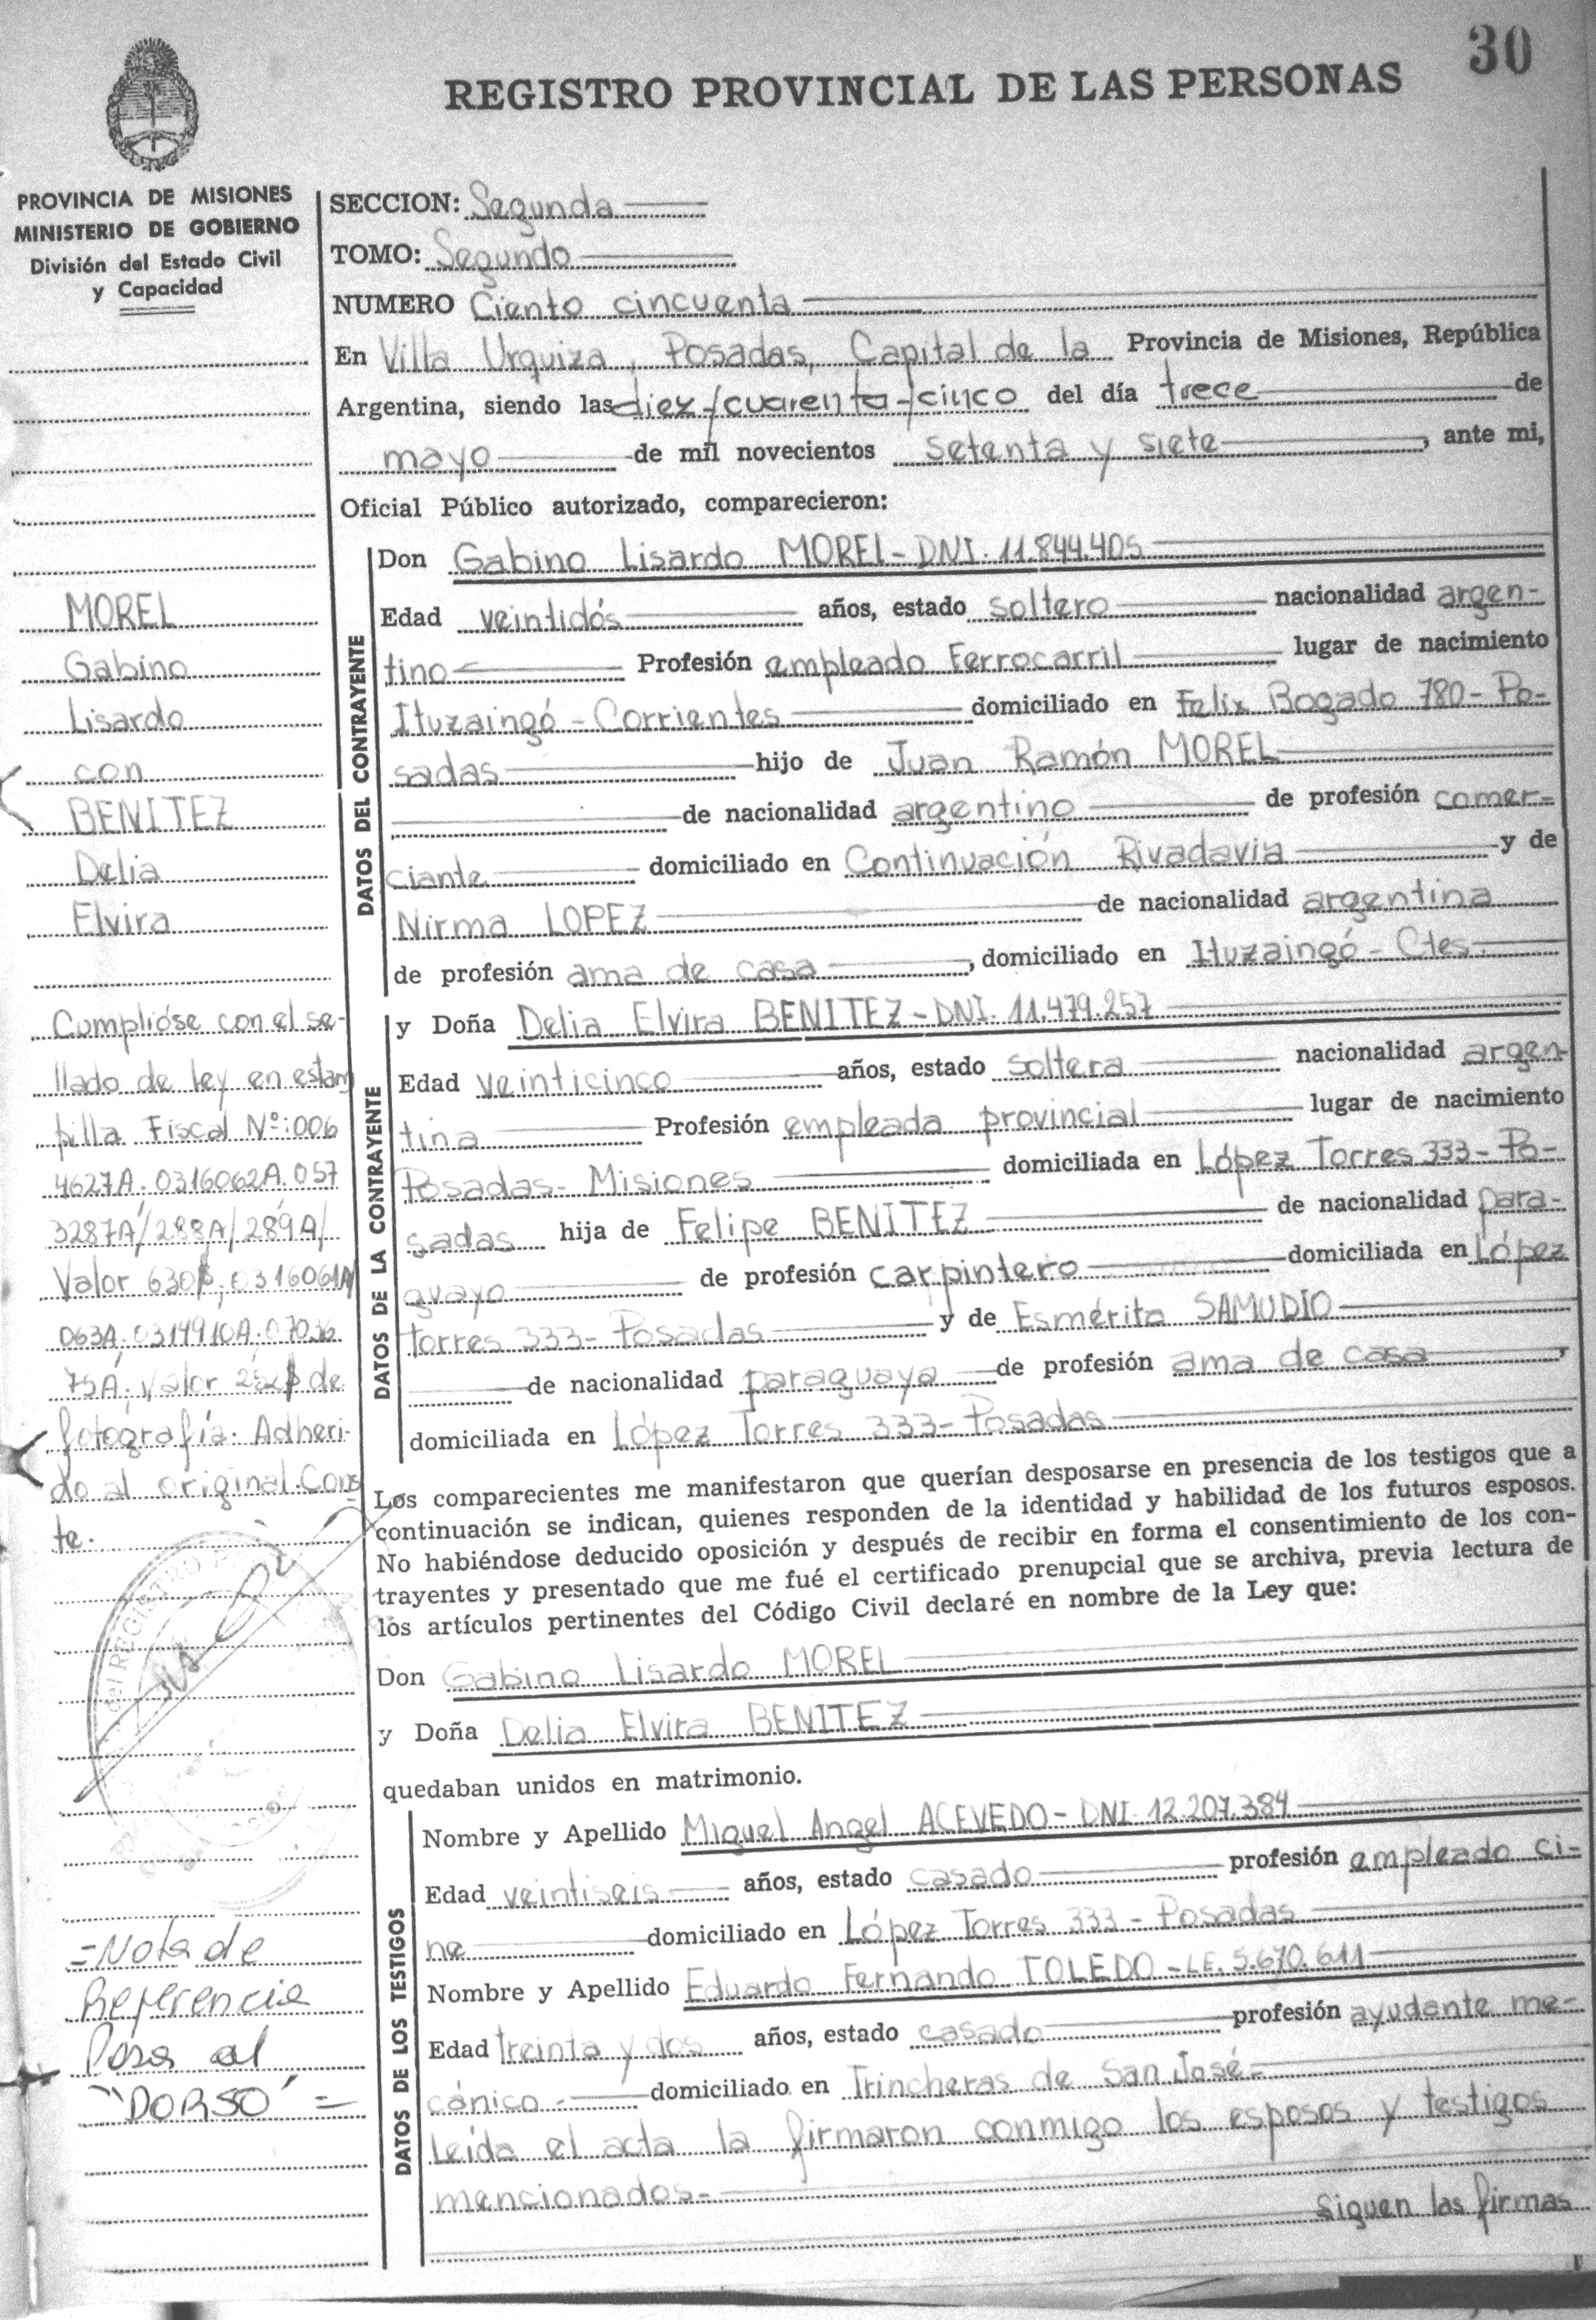 30
REGISTRO PROVINCIAL DE LAS PERSONAS
PROVINCIA DE MISIONES
MINISTERIO DE GOBIERNO
División del Estado Civil
y Capacidad
SECCION: Segunda
TOMO: Segundo
NUMERO Ciento cincuenta
En Villa Urquiza, Posadas, Capital de la Provincia de Misiones, República
Argentina, siendo las diez/cuarenta/cinco del día trece de
mayo de mil novecientos setenta y siete, ante mi,
Oficial Público autorizado, comparecieron:
MOREL
Gabino
Lisardo
con
BENITEZ
Delia
Elvira
Cumplióse con el se-
llado de ley en estam
pilla Fiscal Nº: 006
4627A. 0316062A. 057
3287A/288A/289A/
Valor 630$, 0316061A
063A, 0314910A. 07036
75A, Valor de
fotografía. Adheri-
do al original. Cons
te.
del REGISTRO
=Nota de
Referencia
Pasa al
"DORSO" =
DATOS DEL CONTRAYENTE
Don Gabino Lisardo MOREL - DNI. 11.844.405
Edad veintidós años, estado soltero nacionalidad argen-
tino Profesión empleado Ferrocarril lugar de nacimiento
Ituzaingó - Corrientes domiciliado en Felix Bogado 780 - Po-
sadas hijo de Juan Ramón MOREL
de nacionalidad argentino de profesión comer-
ciante domiciliado en Continuación Rivadavia y de
Nirma LOPEZ de nacionalidad argentina
de profesión ama de casa, domiciliado en Ituzaingó - Ctes.
DATOS DE LA CONTRAYENTE
y Doña Delia Elvira BENITEZ - DNI. 11.479.257
Edad veinticinco años, estado soltera nacionalidad argen
tina Profesión empleada provincial lugar de nacimiento
Posadas - Misiones domiciliada en López Torres 333 - Po-
sadas hija de Felipe BENITEZ de nacionalidad para-
guayo de profesión carpintero domiciliada en López
Torres 333 - Posadas y de Esmérita SAMUDIO
de nacionalidad paraguaya de profesión ama de casa,
domiciliada en López Torres 333 - Posadas
Los comparecientes me manifestaron que querían desposarse en presencia de los testigos que a
continuación se indican, quienes responden de la identidad y habilidad de los futuros esposos.
No habiéndose deducido oposición y después de recibir en forma el consentimiento de los con-
trayentes y presentado que me fué el certificado prenupcial que se archiva, previa lectura de
los artículos pertinentes del Código Civil declaré en nombre de la Ley que:
Don Gabino Lisardo MOREL
y Doña Delia Elvira BENITEZ
quedaban unidos en matrimonio.
DATOS DE LOS TESTIGOS
Nombre y Apellido Miguel Angel ACEVEDO - DNI. 12.207.384
Edad veintiseis años, estado casado profesión empleado ci-
ne domiciliado en López Torres 333 - Posadas
Nombre y Apellido Eduardo Fernando TOLEDO - LE. 5.670.611
Edad treinta y dos años, estado casado profesión ayudante me-
cánico.- domiciliado en Trincheras de San José
Leída el acta la firmaron conmigo los esposos y testigos
mencionados-
Siguen las firmas